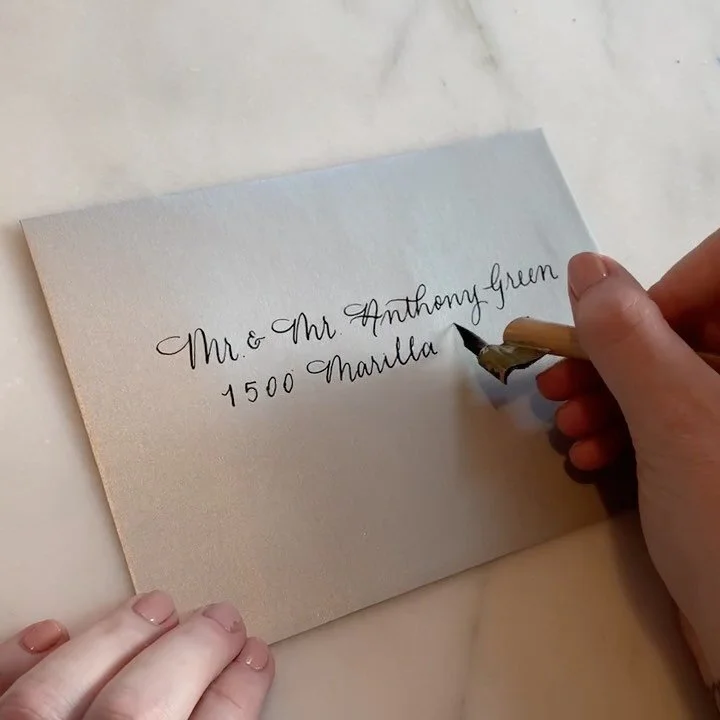 Mr. & Mr. Anthony Green
1500 Marilla